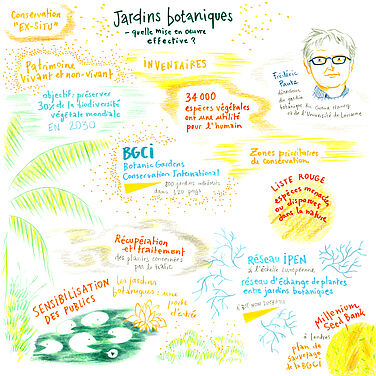 Conservation
"EX-SITU"
Jardins botaniques
- quelle mise en oeuvre
effective ?
Patrimoine
vivant et non-vivant
objectif : préserver
30% de la biodiversité
végétale mondiale
EN 2030
INVENTAIRES
34 000
espèces végétales
ont une utilité
pour l'humain
Frédéric
Pautz
directeur
du jardin
botanique du
et de l'Université de Lausanne
BGCI
Botanic Gardens
Conservation International
800 jardins
dans 120 pays
Zones prioritaires
de conservation
LISTE ROUGE
espèces menacées
ou disparues
dans la nature
Récupération
et traitement
des plantes concernées
par le trafic
Réseau IPEN
à l'échelle européenne
réseau d'échange de plantes
entre jardins botaniques
SENSIBILISATION
DES PUBLICS
les jardins
botaniques : une porte
d'entrée
Millenium
Seed Bank
à Londres
plan de
sauvetage
de la BGCI